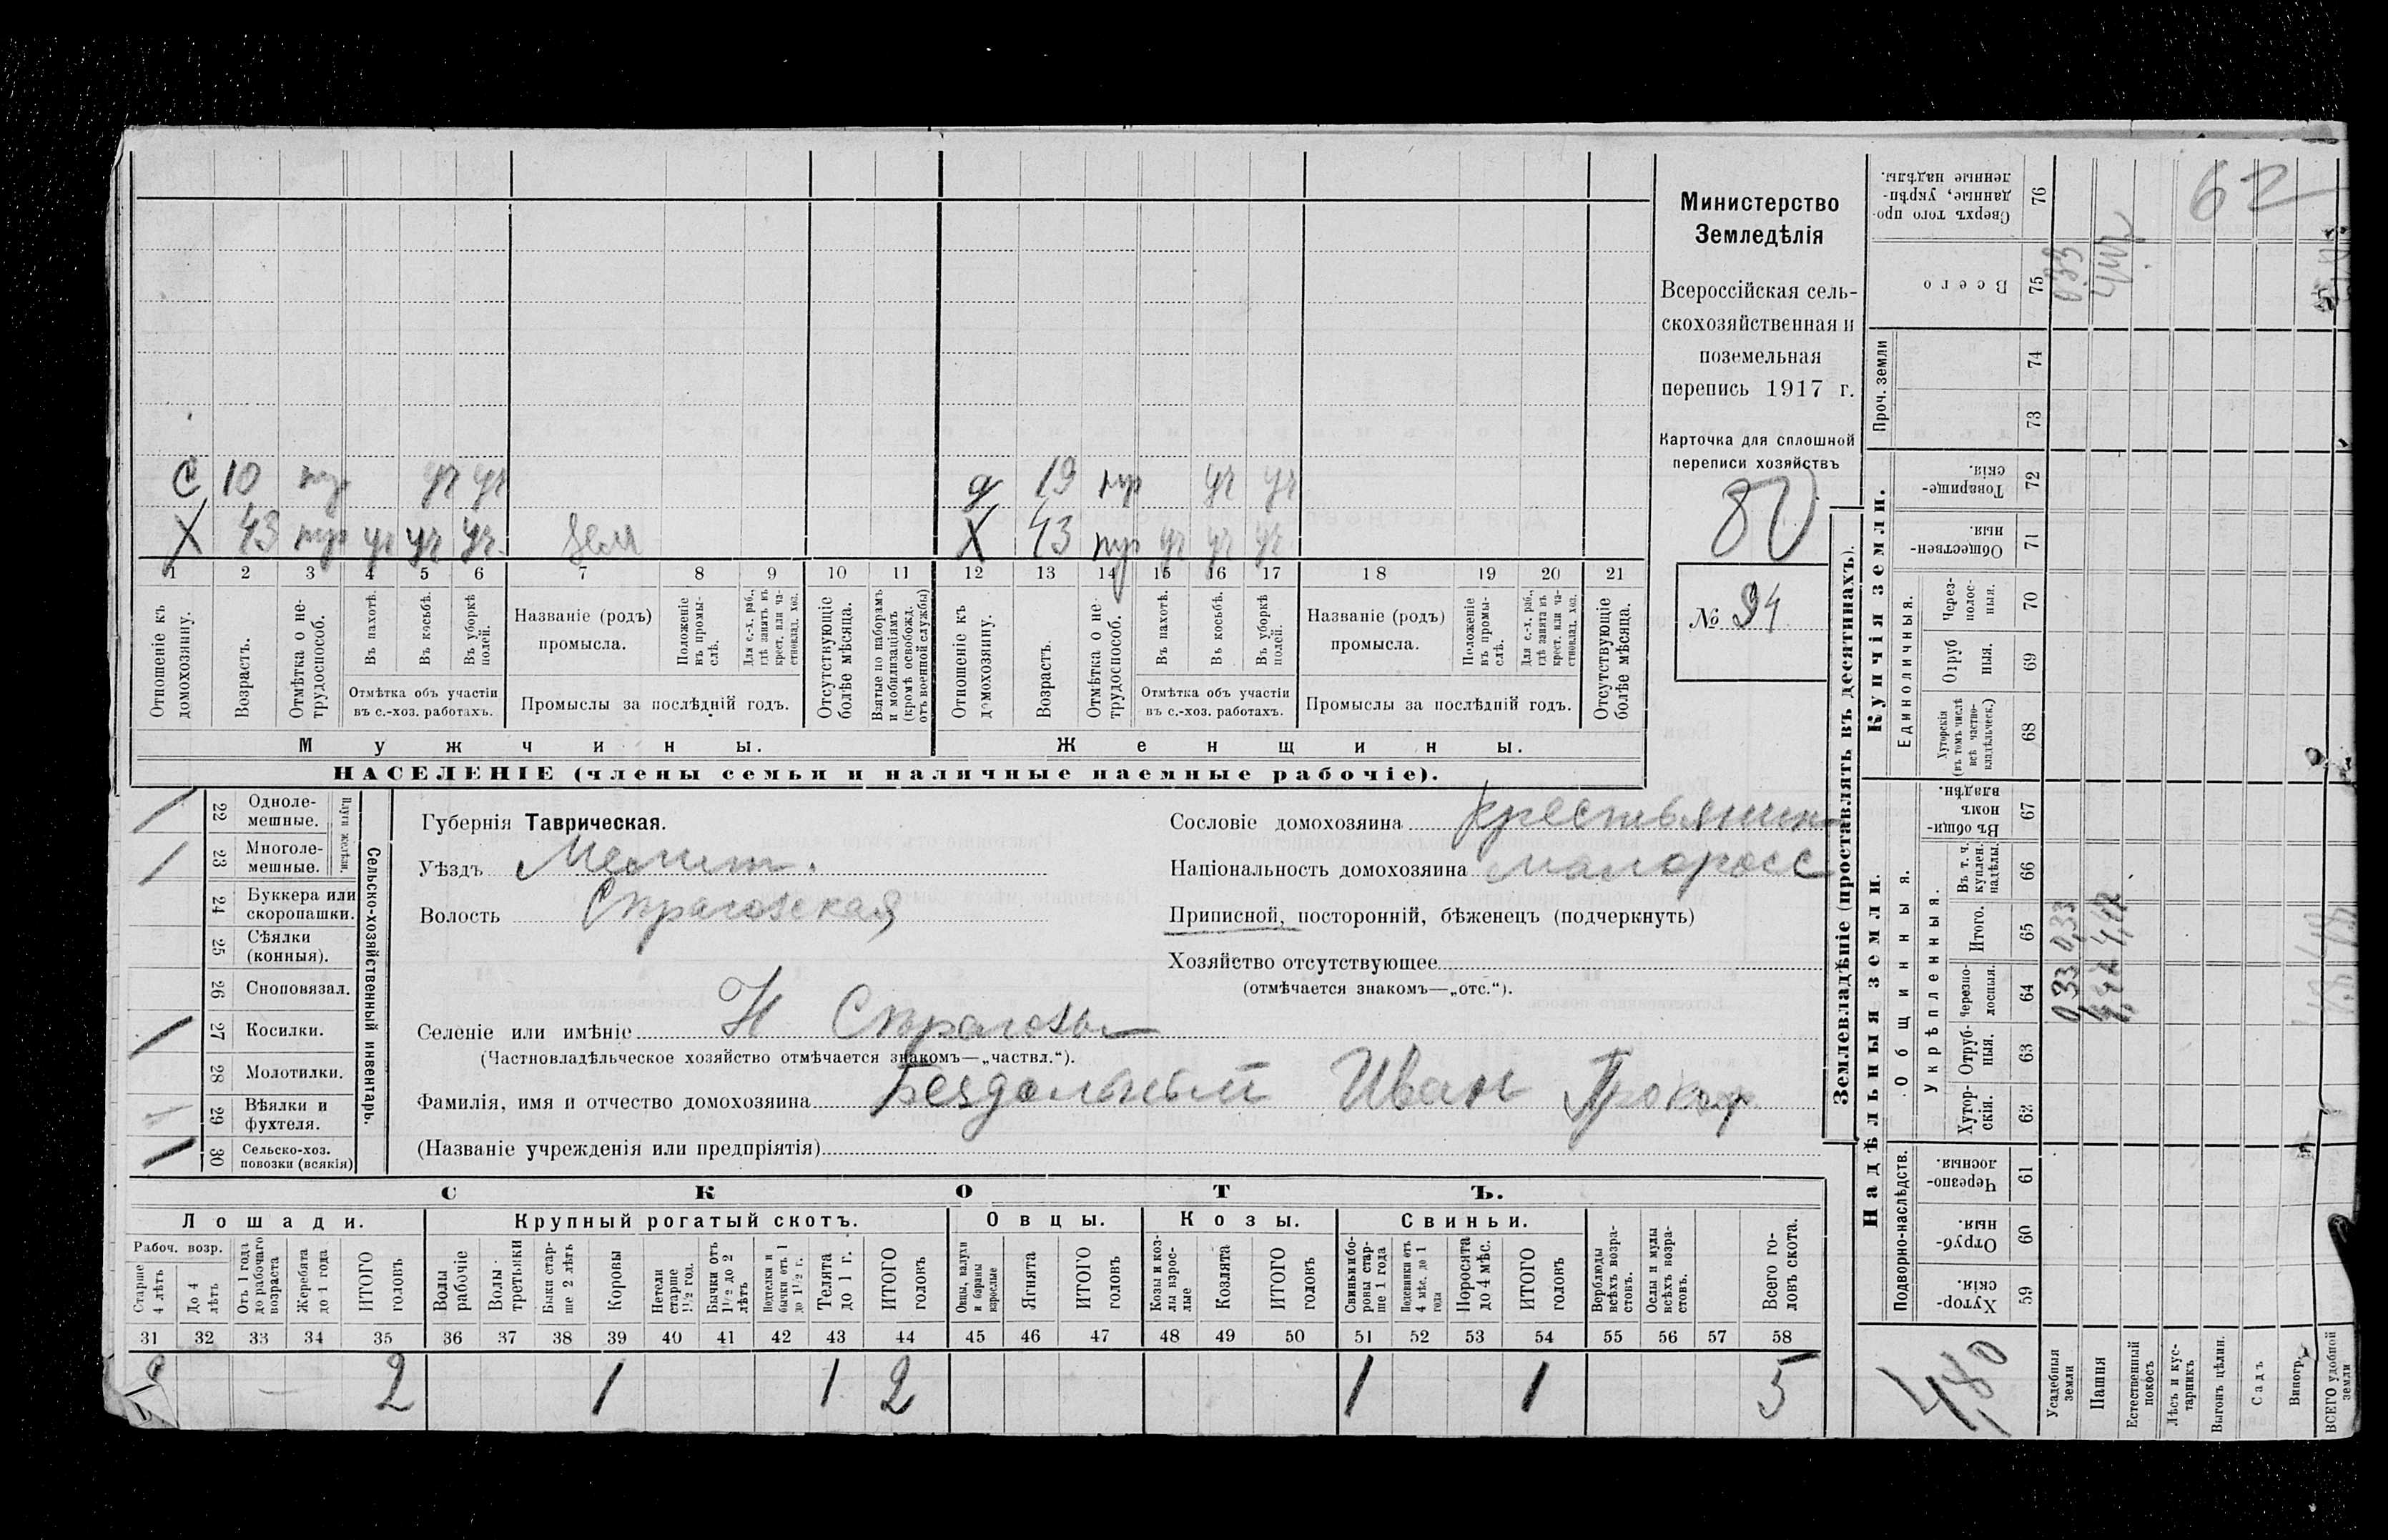 С 10 тр уч уч
Д 19 тр уч уч
Х 43 тр уч уч уч зем
Х 43 тр уч уч уч
1 2 3 4 5 6 7 8 9 10 11 12 13 14 15 16 17 18 19 20 21
Отношеніе къ домохозяину.
Возрастъ.
Отмѣтка о нетрудоспособ.
Въ пахотѣ.
Въ косьбѣ.
Въ уборкѣ полей.
Отмѣтка объ участіи
въ с.-хоз. работахъ.
Названіе (родъ)
промысла.
Положеніе въ промыслѣ.
Для с.-х. раб., гдѣ занятъ въ крест. или частновлад. хоз.
Промыслы за послѣдній годъ.
Отсутствующіе болѣе мѣсяца.
Взятые по наборамъ и мобилизаціямъ (кромѣ освобожд. отъ военной службы)
Отношеніе къ домохозяину.
Возрастъ.
Отмѣтка о нетрудоспособ.
Въ пахотѣ.
Въ косьбѣ.
Въ уборкѣ полей.
Отмѣтка объ участіи
въ с.-хоз. работахъ.
Названіе (родъ)
промысла.
Положеніе въ промыслѣ.
Для с.-х. раб., гдѣ занята въ крест. или частновлад. хоз.
Промыслы за послѣдній годъ.
Отсутствующіе болѣе мѣсяца.
Мужчины.
Женщины.
НАСЕЛЕНІЕ (члены семьи и наличные наемные рабочіе).
Министерство
Земледѣлія
Всероссійская сель-
скохозяйственная и
поземельная
перепись 1917 г.
Карточка для сплошной
переписи хозяйствъ
80
№ 94
1 22 Одноле-
мешные.
1 23 Многоле-
мешные.
Плуги желѣзн.
24 Буккера или
скоропашки.
25 Сѣялки
(конныя).
26 Сноповязал.
1 27 Косилки.
28 Молотилки.
1 29 Вѣялки и
фухтеля.
1 30 Сельско-хоз.
повозки (всякія)
Сельско-хозяйственный инвентарь.
Губернія Таврическая.
Уѣздъ Мелит.
Волость
Селеніе или имѣніе Н
(Частновладѣльческое хозяйство отмѣчается знакомъ—„частвл.“).
Фамилія, имя и отчество домохозяина Бездольный Иван Прокоф
(Названіе учрежденія или предпріятія)
Сословіе домохозяина крестьянин
Національность домохозяина малоросс
Приписной, посторонній, бѣженецъ (подчеркнуть)
Хозяйство отсутствующее
(отмѣчается знакомъ—„отс.“).
СКОТЪ.
Лошади. Крупный рогатый скотъ. Овцы. Козы. Свиньи.
Рабоч. возр.
Старше 4 лѣтъ
До 4 лѣтъ
Отъ 1 года до рабочаго возраста
Жеребята до 1 года
ИТОГО головъ
Волы рабочіе
Волы третьяки
Быки старше 2 лѣтъ
Коровы
Нетели старше 1½ год.
Бычки отъ 1½ до 2 лѣтъ
Подтелки и бычки отъ 1 до 1½ г.
Телята до 1 г.
ИТОГО головъ
Овцы, валухи и бараны взрослые
Ягнята
ИТОГО головъ
Козы и козлы взрослые
Козлята
ИТОГО головъ
Свиньи и боровы старше 1 года
Подсвинки отъ 4 мѣс. до 1 года
Поросята до 4 мѣс.
ИТОГО головъ
Верблюды всѣхъ возрастовъ.
Ослы и мулы всѣхъ возрастовъ.
Всего головъ скота.
31 32 33 34 35 36 37 38 39 40 41 42 43 44 45 46 47 48 49 50 51 52 53 54 55 56 57 58
2 2 1 1 2 1 1 5
Землевладѣніе (проставлять въ десятинахъ).
Надѣльныя земли.
Купчія земли.
Проч. земли
Сверхъ того проданные, укрѣпленные надѣлы. 76
Всего 75
74
73
Товарищескія. 72
Общественныя. 71
Единоличныя.
Черезполосныя. 70
Отрубныя. 69
Хуторскія (въ томъ числѣ всѣ частновладѣльческ.) 68
Общинныя.
Въ общинномъ владѣн. 67
Укрѣпленныя.
Въ т. ч. куплен. надѣлы. 66
Итого. 65
Черезполосныя. 64
Отрубныя. 63
Хуторскія. 62
Подворно-наслѣдств.
Черезполосныя. 61
Отрубныя. 60
Хуторскія. 59
Усадебныя земли
Пашня
Естественный покосъ
Лѣсъ и кустарникъ
Выгонъ цѣлин.
Садъ
Виногр.
ВСЕГО удобной земли
62
0,33
0,33 0,33
480